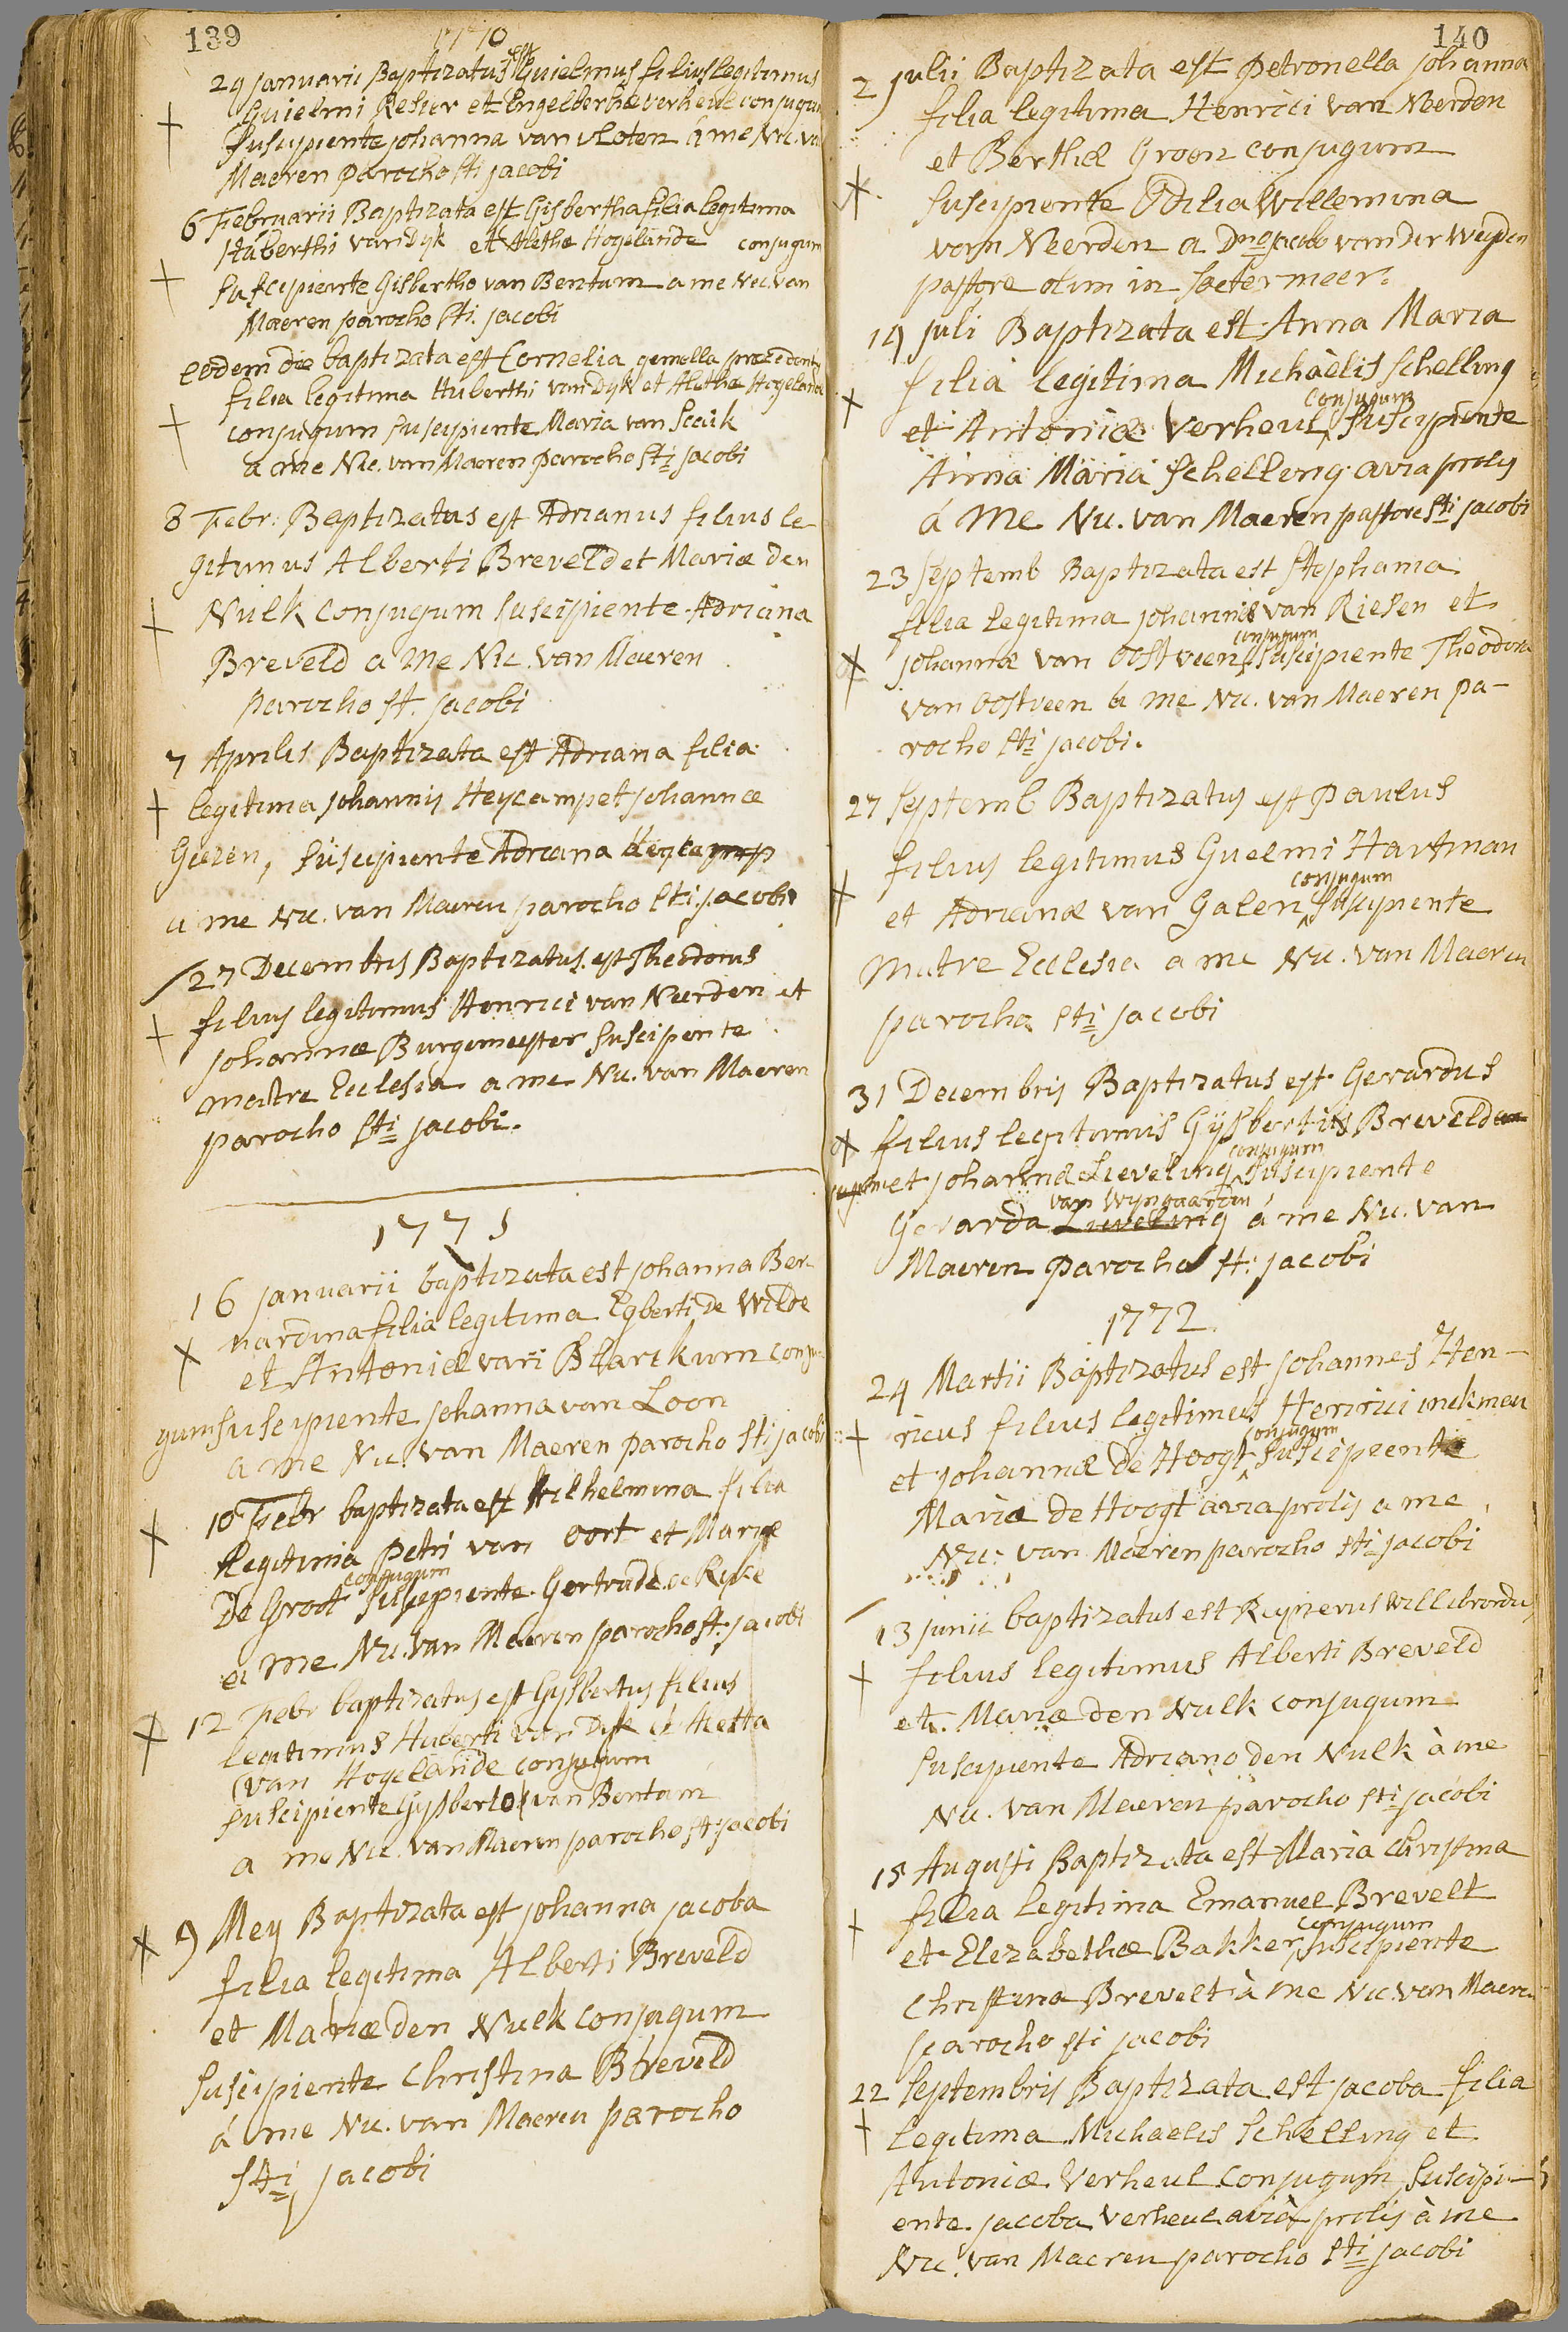 139
1770
29 januarii Baptizatus est Guielmus filius legitimus
Guielmi Resier et Engelberthæ verheul conjugum
suscipiente johanna van vloten a me Nic. va
Maeren parocho Sti jacobi
6 Februarii Baptizata est Gisbertha filia legitima
Huberthi van Dyk et Alethæ Hogelande conjugum
suscipiente Gisbertho van Bentum a me Nic van
Maeren parocho Sti. jacobi
eodem die baptizata est Cornelia gemella præcedentis
filia legitima Huberthi van Dyk et Alethæ Hogeland
conjugum suscipiente Maria van Scaik
a me Nic. van Maeren parocho Sti jacobi
8 Febr: Baptizatus est Adrianus filius le-
gitimus Alberti Breveld et Mariæ den
Nulk conjugum suscipiente Adriana
Breveld a me Nic. van Maeren
parocho St. jacobi
7 Aprilis Baptizata est Adriana filia
legitima johannis Heycamp et johannæ
Giezen, suscipiente Adriana Heycamp
a me Nic. van Maeren parocho Sti jacobi
27 Decembris Baptizatus est Theodorus
filius legitimus Henrici van Neerden et
johannæ Burgemeester suscipente
matre Ecclesia a me Nic. van Maeren
parocho Sti jacobi.
1771
16 januarii baptizata est johanna Ber-
nardina filia legitima Egberti de Wilde
et Antoniæ van Blarckum conju-
gum suscipiente johanna van Loon
a me Nic. van Maeren parocho Sti jacobi
10 Febr baptizata est Wilhelmina filia
legitimia Petri van oort et Mariæ
conjugum
De Groot suscepiente Gertrude de Ryke
a me Nic. van Maeren parocho St. jacobi
12 Febr baptizatus est Gysbertus filius
legitimus Huberti van Dyk et Aletta
van Hogelande conjugum
suscipiente Gysberto van Bentum
a me Nic. van Maeren parocho St. jacobi
9 Mey Baptizata est johanna jacoba
filia legitima Alberti Breveld
et Mariæ den Nulk conjugum
suscipiente Christina Breveld
á me Nic. van Maeren parocho
Sti jacobi
140
2 julii Baptizata est Petronella johanna
filia legitima Henrici van Neerden
et Berthæ Groen conjugum
suscipiente Odilia Willemina
van Neerden a Dno jacobo van der Weyden
pastore olim in Soetermeer.
14 juli Baptizata est Anna Maria
filia legitima Michaëlis Schelling
conjugum
et Antoniæ Verheul suscipiente
Anna Maria Schelling avia prolis
á me Nic. van Maeren pastore Sti jacobi
23 Septemb Baptizata est Stephania
filia legitima johannis van Riesen et
conjugum
johannæ van Oostveen suscipiente Theodora
van Oostveen a me Nic. van Maeren pa-
rocho Sti jacobi.
27 Septemb Baptizatus est Paulus
filius legitimus Guelmi Hartman
conjugum
et Adrianæ van Galen suscipiente
matre Ecclesia a me Nic. van Maeren
parocho Sti jacobi
31 Decembris Baptizatus est Gerardus
filius legitimus Gysberti Breveld
conjugum
et johannæ Lieveling suscipiente
van Wyngaarden
Gerarda Lieveling á me Nic. van
Maeren parocho St: jacobi
1772
24 Martii Baptizatus est johannes Hen-
ricus filius legitimus Henrici inckman
conjugum
et johannæ de Hoogt suscipiente
Maria de Hoogt avia prolis a me
Nic: van Maeren parocho Sti jacobi
13 junii baptizatus est Reynerus Willibrordus
filius legitimus Alberti Breveld
et Mariæ den Nulk conjugum
suscipiente Adriano den Nulk à me
Nic. van Maeren parocho Sti jacobi
15 Augusti Baptizata est Maria Christina
filia legitima Emanuel Brevelt
conjugum
et Elezabethæ Bakker suscipiente
Christina Brevelt à me Nic. van Maeren
parocho Sti jacobi
22 Septembris Baptizata est jacoba filia
legitima Michaelis Schelling et
Antoniæ Verheul conjugum suscipi-
ente jacoba Verheul avia prolis à me
Nic. van Maeren parocho Sti jacobi